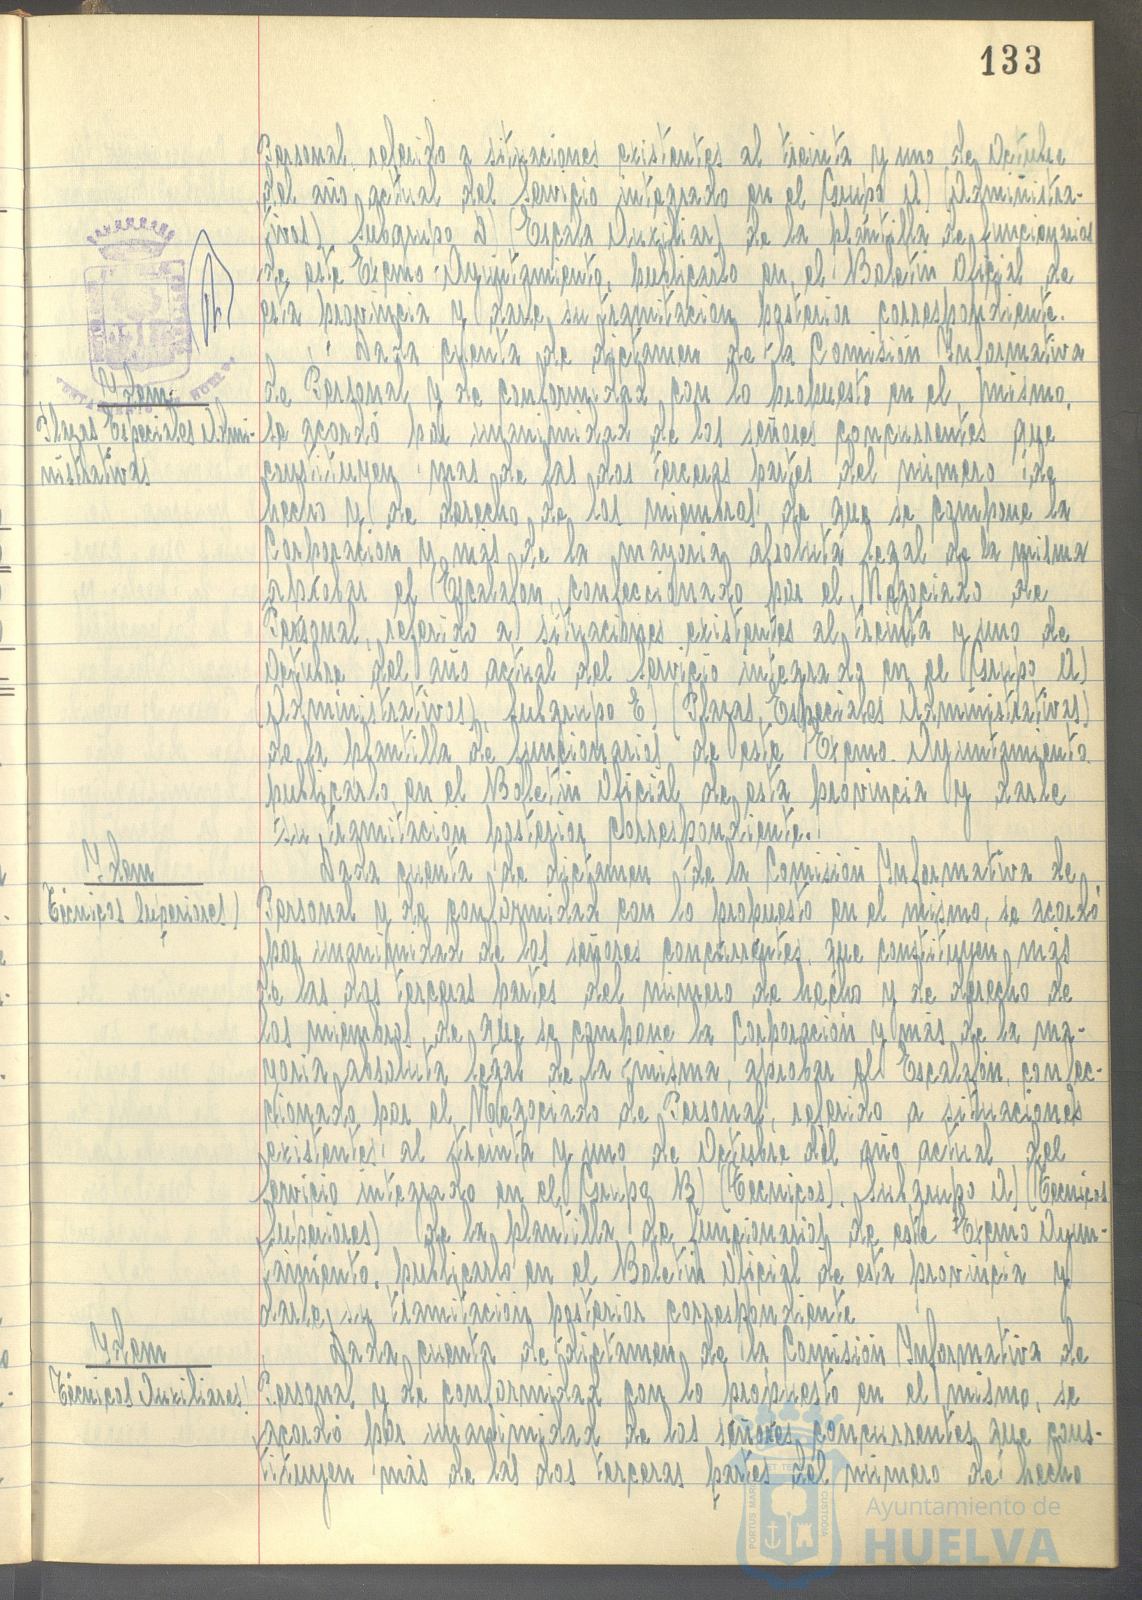 133
Personal, referido a situaciones existentes al treinta y uno de Octubre
del año actual del Servicio integrado en el Grupo A) (Administra-
tivos) Subgrupo D) (Escala Auxiliar) de la plantilla de funcionarios
de este Excmo. Ayuntamiento, publicarlo en el Boletín Oficial de
esta provincia y darle su tramitación posterior correspondiente.
Idem
Plazas Especiales Admi-
nistrativas
Dada cuenta de dictamen de la Comisión Informativa
de Personal y de conformidad con lo propuesto en el mismo,
se acordó por unanimidad de los señores concurrentes que
constituyen mas de las dos terceras partes del número de
hecho y de derecho de los miembros de que se compone la
Corporación y más de la mayoria absoluta legal de la misma
aprobar el Escalafón, confeccionado por el Negociado de
Personal, referido a situaciones existentes al treinta y uno de
Octubre del año actual del Servicio integrado en el Grupo A)
(Administrativos), Subgrupo E) (Plazas Especiales Administrativas)
de la plantilla de funcionarios de este Excmo. Ayuntamiento
publicarlo en el Boletín Oficial de esta provincia y darle
su tramitación posterior correspondiente.
Idem
Técnicos Superiores)
Dada cuenta de dictamen de la Comisión Informativa de
Personal y de conformidad con lo propuesto en el mismo, se acordó
por unanimidad de los señores concurrentes, que constituyen más
de las dos terceras partes del número de hecho y de derecho de
los miembros, de que se compone la Corporación y más de la ma-
yoria absoluta legal de la misma, aprobar el Escalafón, confec-
cionado por el Negociado de Personal, referido a situaciones
existentes al treinta y uno de Octubre del año actual del
Servicio integrado en el Grupo B) (Técnicos), Subgrupo A) (Técnicos
Superiores) de la plantilla de funcionarios de este Excmo Ayun-
tamiento, publicarlo en el Boletín Oficial de esta provincia y
darle su tramitación posterior correspondiente
Idem
Técnicos Auxiliares)
Dada cuenta de dictamen de la Comisión Informativa de
Personal y de conformidad con lo propuesto en el mismo, se
acordó por unanimidad de los señores concurrentes que cons-
tituyen más de las dos terceras partes del número de hecho
Ayuntamiento de
HUELVA